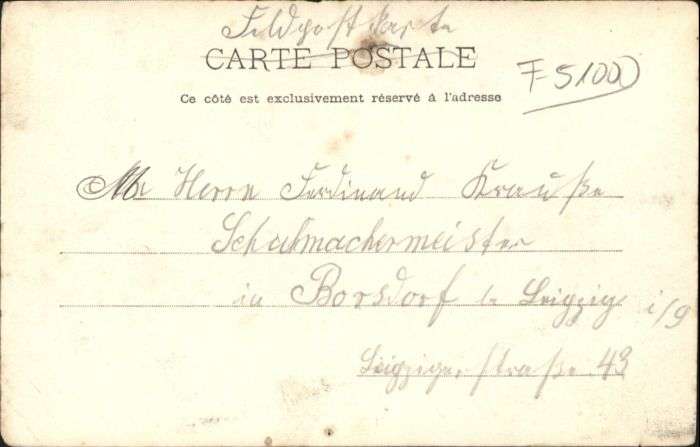 Feldpostkarte
CARTE POSTALE
F 5100
Ce côté est exclusivement réservé à l'adresse
M Herrn Ferdinand Krauße
Schuhmachermeister
in Borsdorf b Leipzig i/S
Leipziger straße 43